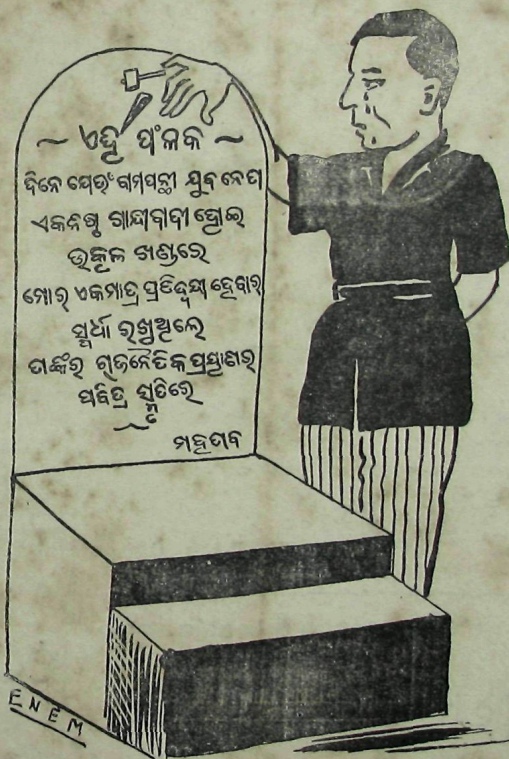 ~ ଏହୁ ଫଳକ ~
ଦିନେ ଯେଉଁ ବାମପନ୍ଥୀ ଯୁବନେତା
ଏକନିଷ୍ଠ ଗାନ୍ଧୀବାଦୀ ହୋଇ
ଉତ୍କଳ ଖଣ୍ଡରେ
ମୋର ଏକମାତ୍ର ପ୍ରତିଦ୍ୱନ୍ଦ୍ୱୀ ହେବାର
ସ୍ପର୍ଧା ରଖିଥିଲେ
ତାଙ୍କର ରାଜନୈତିକ ପ୍ରୟାଣର
ପବିତ୍ର ସ୍ମୃତିରେ
ମହତାବ
ENEM